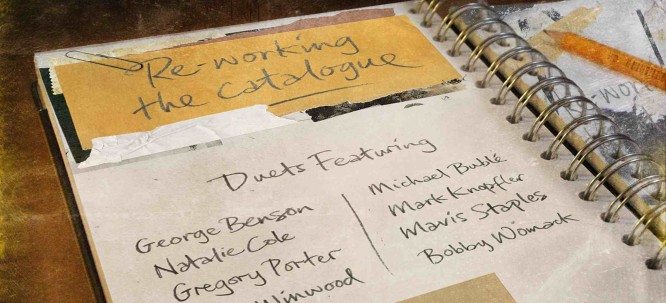 Re-working
the catalogue
Duets Featuring
George Benson
Natalie Cole
Gregory Porter
Winwood
Michael Bublé
Mark Knopfler
Mavis Staples
Bobby Womack